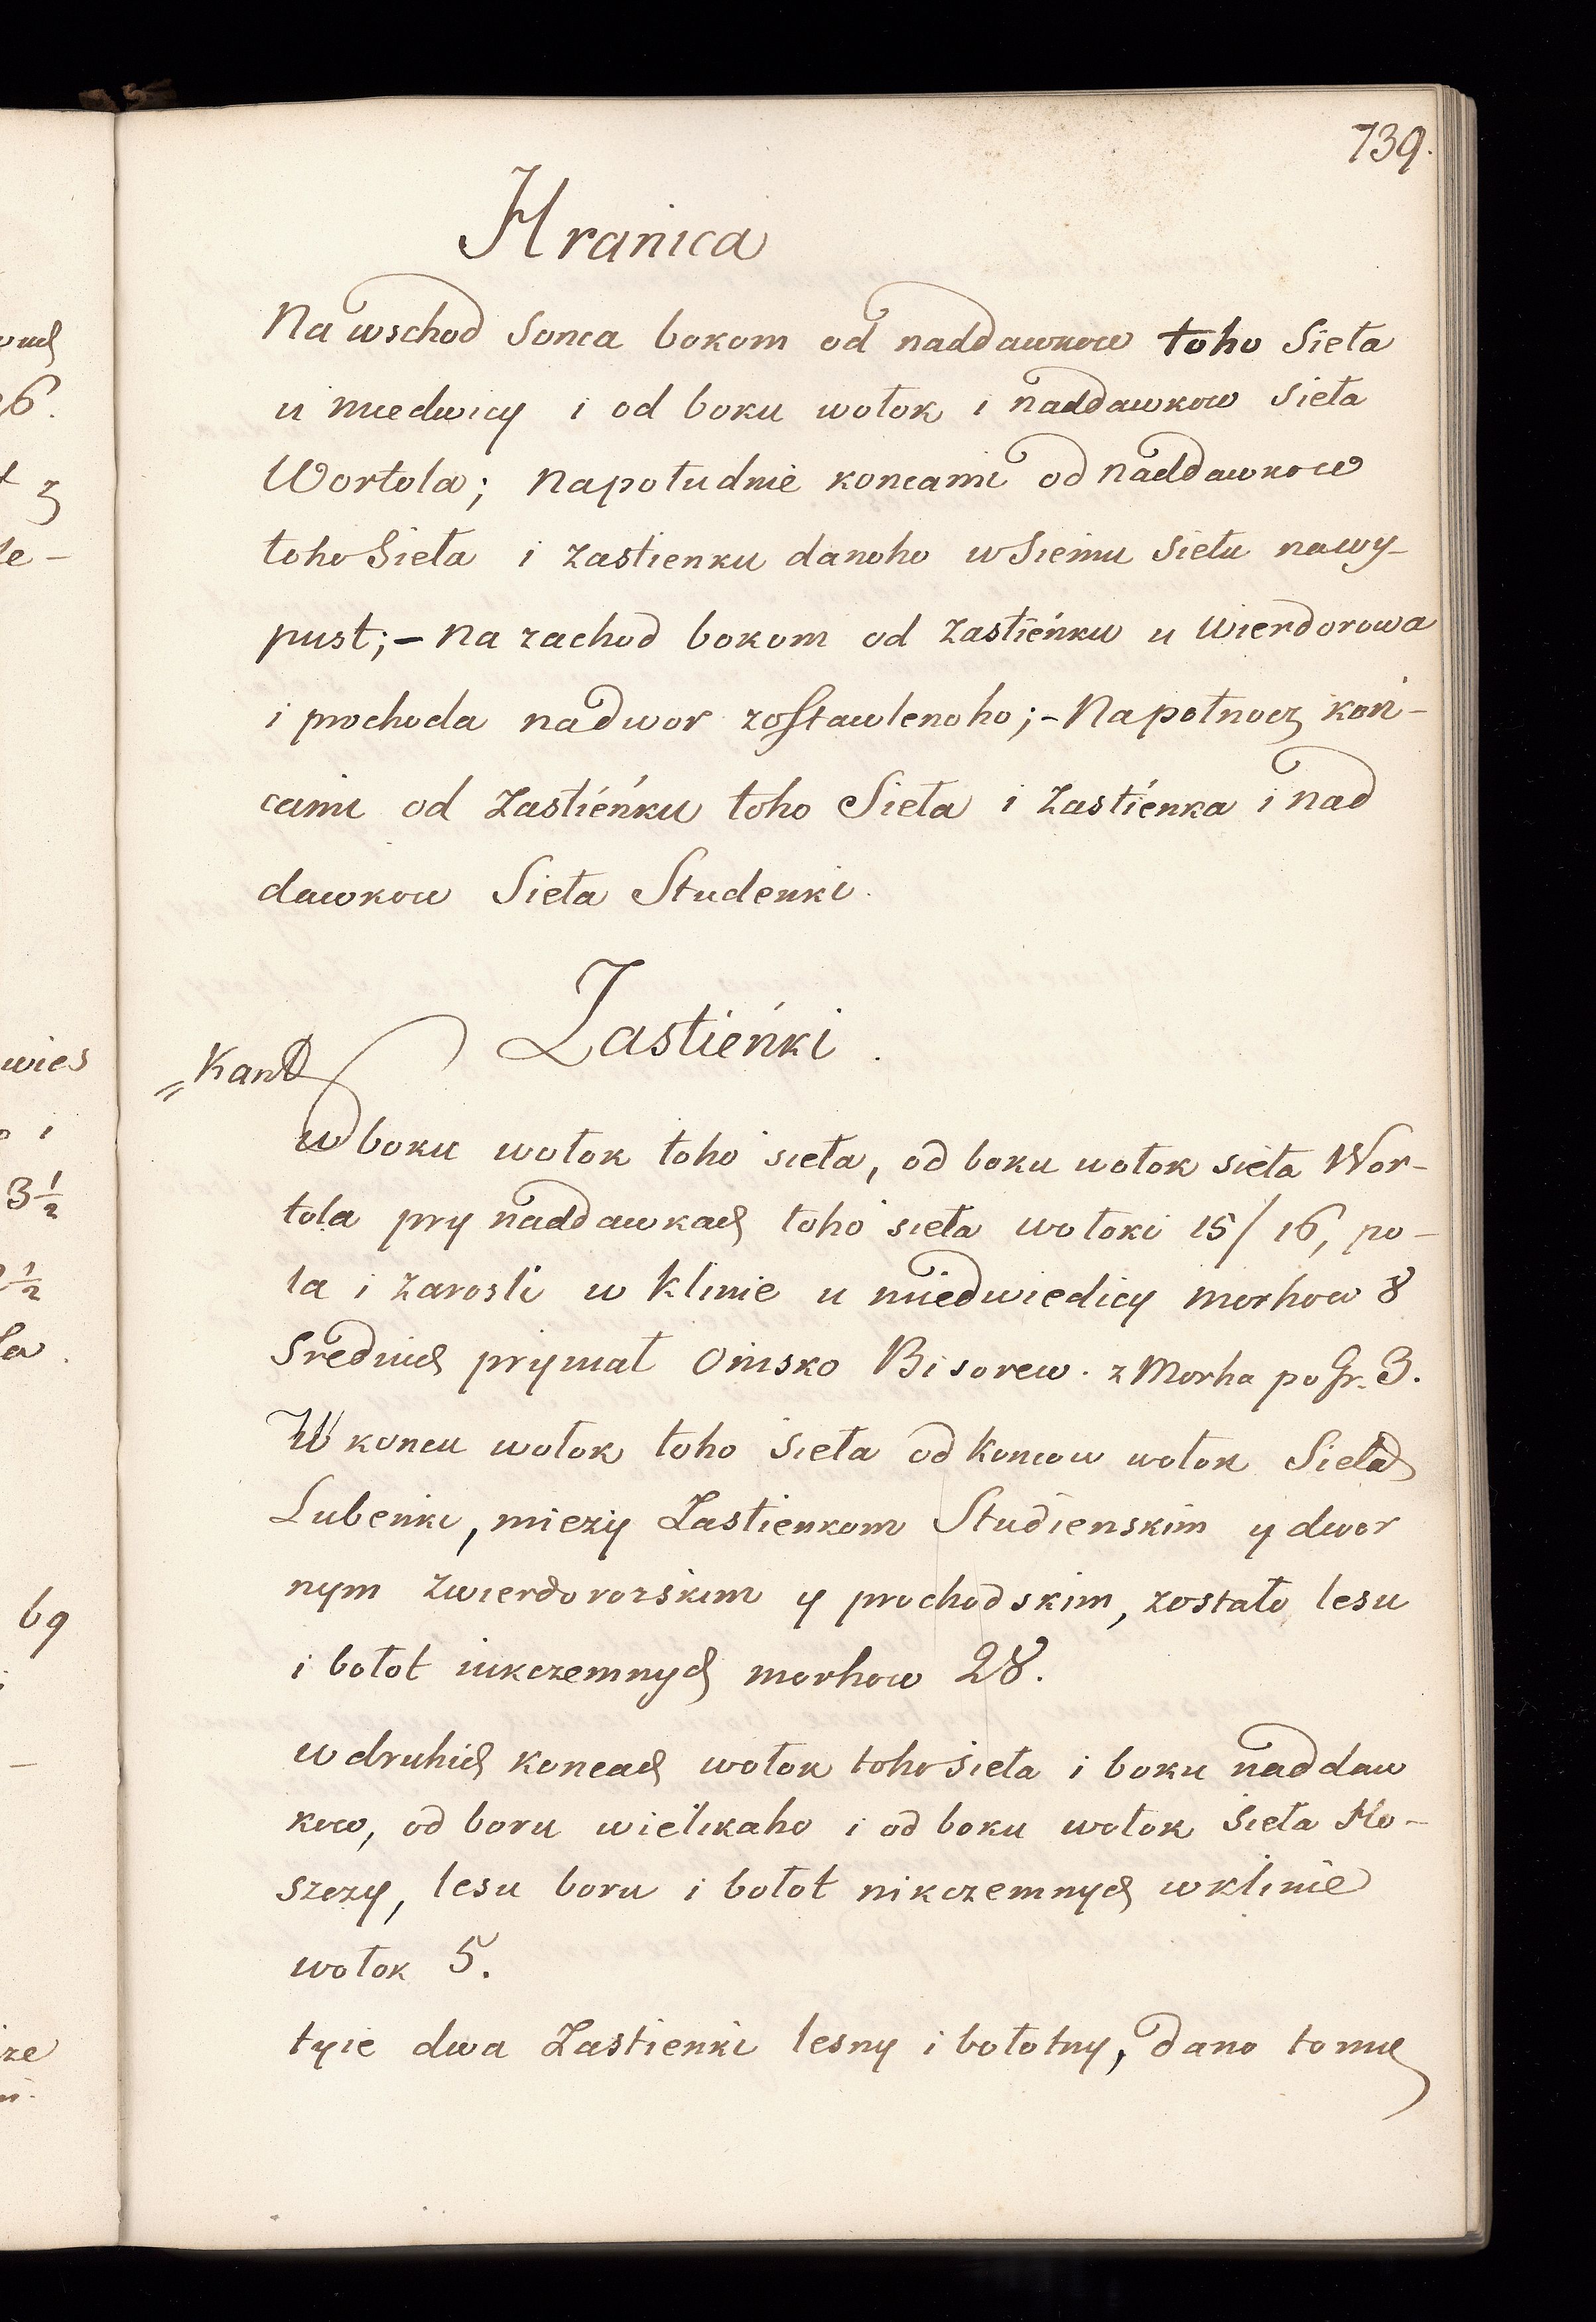 739.
Hranica
Na wschod Sonca bokom od naddawkow toho Sieła
u miedwicy i od boku wołok i naddawkow Sieła
Wortola; Na południe koncami od naddawkow
toho Sieła i zastienku danoho wsiemu siełu nawy-
pust;- Na zachod bokom od zastieńku u Wierdorowa
i prochoda nadwor zostawlenoho;- Na połnocz koń-
cami od zastieńku toho Sieła i zastienka i nad
dawkow Sieła Studenki.
Zastieńki.
"Kant
w boku wołok toho sieła, od boku wołok sieła Wor-
tola pry naddawkach toho sieła wołoki 15/16, po-
la i zarosli w klinie u miedwiedicy morhow 8
Srednich prymał Omsko Bisorew. z Morha po Gr. 3.
W koncu wołok toho sieła od koncow wołok Sieła
Lubenki, miezy Zastienkom Studienskim y dwor
nym zwierdorozskim y prochodskim, zostało lesu
i bołot nikczemnych morhow 28.
w druhich koncach wołok toho sieła i boku naddaw
kow, od boru wielikaho i od boku wołok sieła Ho-
szczy, lesu boru i bołot nikczemnych w klinie
wołok 5.
tyie dwa Zastienki lesny i bołotny, dano tomu
wies
i
3 1/2
1/2
69